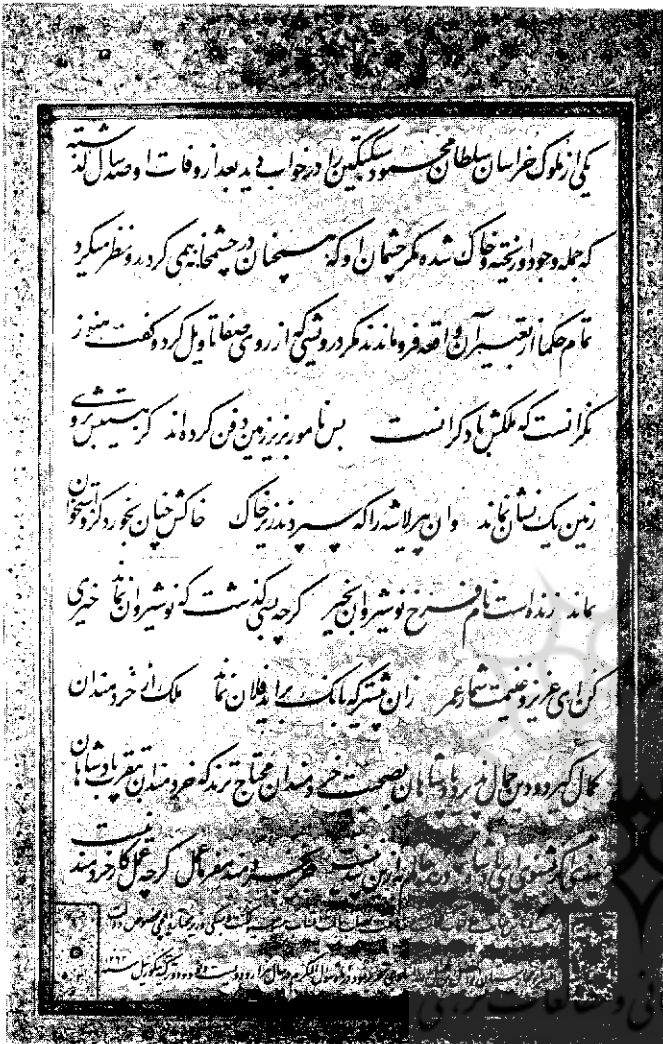 یکی از ملوک خراسان سلطان محمود سبکتگین را در خواب دید بعد از وفات او صد سال گذشته
که جمله وجود او ریخته و خاک شده مگر چشمان او که همچنان در چشمخانه همی کردید و نظر میکرد
تمام حکما از تعبیر آن واقعه فروماندند مگر درویشی که از روی صفا تاویل کرد و گفت هنوز
نگرانست که ملکش با دگرانست بس نامور بزیر زمین دفن کرده‌اند کز هستیش بروی
زمین یک نشان نماند وان پیر لاشه را که سپردند زیر خاک خاکش چنان بخورد کزو استخوان
نماند زنده است نام فرخ نوشیروان بخیر گرچه بسی گذشت که نوشیروان نماند خیری
کن ای عزیز و غنیمت شمار عمر زان پیشتر که بانگ براید فلان نماند ملک از خردمندان
کمال گیرد و دین جمال پذیرد پادشاهان بصحبت خردمندان محتاج ترند که خردمندان بتقرب پادشاهان
پندی اگر بشنوی ای پادشاه در همه عالم به ازین پند نیست جز بخردمند مفرما عمل گرچه عمل کار خردمند نیست